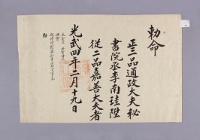 勅命
正三品通政大夫秘
書院丞李南珪陞
從二品嘉善大夫者
光武四年二月十九日